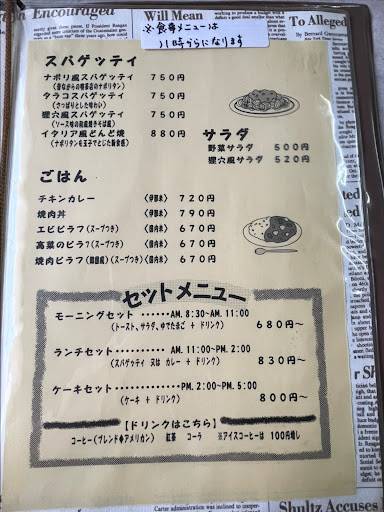 Encouraged
Will Mean
To Alleged
※食事メニューは
11時からになります
スパゲッティ
ナポリ風スパゲッティ 750円
(昔ながらの喫茶店のナポリタン)
タラコスパゲッティ 750円
(さっぱりとした味わい)
狸穴風スパゲッティ 750円
(ソース味の和風焼きそば風)
イタリア風どんど焼 880円
(ナポリタンを玉子でとじた新食感)
サラダ
野菜サラダ 500円
狸穴風サラダ 520円
ごはん
チキンカレー 〈伊那米〉 720円
焼肉丼 〈伊那米〉 790円
エビピラフ(スープつき) 〈国内米〉 670円
高菜のピラフ(スープつき) 〈国内米〉 670円
焼肉ピラフ(韓国風)(スープつき) 〈国内米〉 670円
セットメニュー
モーニングセット ‥‥‥‥AM. 8:30~AM. 11:00
(トースト、サラダ、ゆでたまご + ドリンク) 680円~
ランチセット‥‥‥‥‥‥AM. 11:00~PM. 2:00
(スパゲッティ 又は カレー + ドリンク) 830円~
ケーキセット‥‥‥‥‥‥PM. 2:00~PM. 5:00
(ケーキ + ドリンク) 800円~
【ドリンクはこちら】
コーヒー(ブレンド◆アメリカン) 紅茶 コーラ ※アイスコーヒーは 100円増し
Shultz Accuses